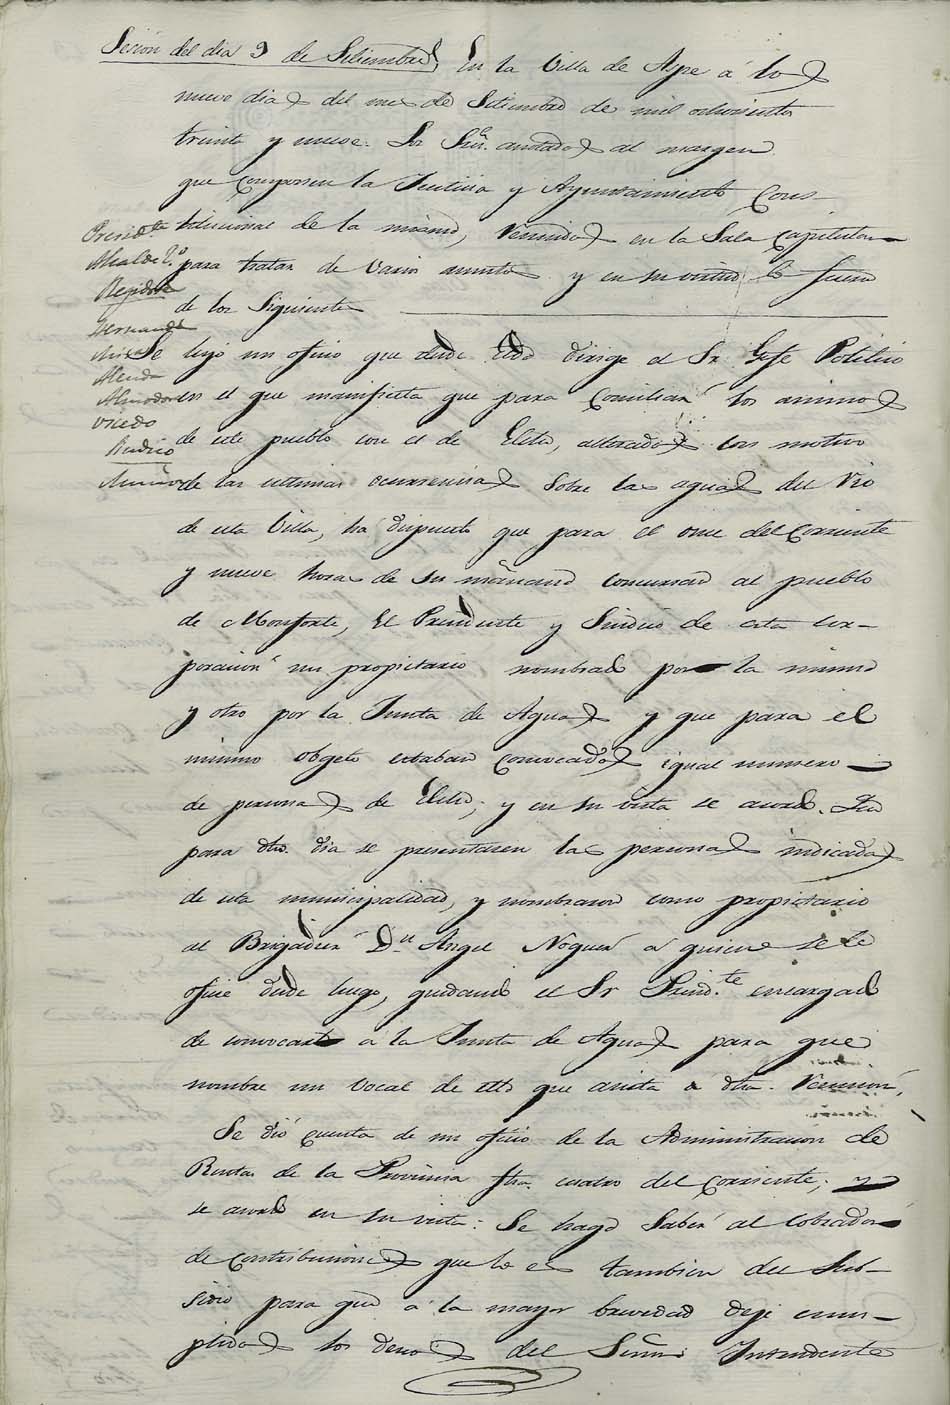 Sesion del dia 9 de Setiembre, En la Villa de Aspe á los
nueve dias del mes de Setiembre de mil ochocientos
treinta y nueve: Los Sres. anotados al margen
que componen la Justicia y Ayuntamiento Cons-
titucional de la misma, reunidos en la Sala Capitular
para tratar de varios asuntos y en su virtud lo fueron
de los Siguientes
Presidte
Alcalde 2º
Regidores
Hernandez
Mira
Almodovar
Oviedo
Sindico
Se leyó un oficio que desde Elda dirige el Sr. Gefe Politico
en el que manifiesta que para Conciliar los animos
de este pueblo con el de Elche, alterados con motivo
de las ultimas ocurrencias sobre las aguas del Rio
de esta Villa, ha dispuesto que para el once del Corriente
y nueve horas de su mañana concurran al pueblo
de Monforte, El Presidente y Sindico de esta Cor-
poracion un propietario nombrado por la misma
y otro por la Junta de Aguas y que para el
mismo obgeto estaban convocados igual numero
de personas de Elche; y en su vista se acordó. Que
para dho. dia se presentasen las personas indicadas
de esta municipalidad, y nombraron como propietario
al Brigadier Dn Angel Nogués á quien se le
oficie desde luego, quedando el Sr Presidte encargado
de convocar a la Junta de Aguas para que
nombre un vocal de ella que asista a dha. Reunion,
Se dió cuenta de un oficio de la Administracion de
Rentas de la Provincia fha. cuatro del Corriente; y
se acordó en su vista: Se haga Saber al cobrador
de contribuciones que lo es tambien del Sub-
sidio para que á la mayor brevedad deje cum-
plidos los deseos del Señor Intendente